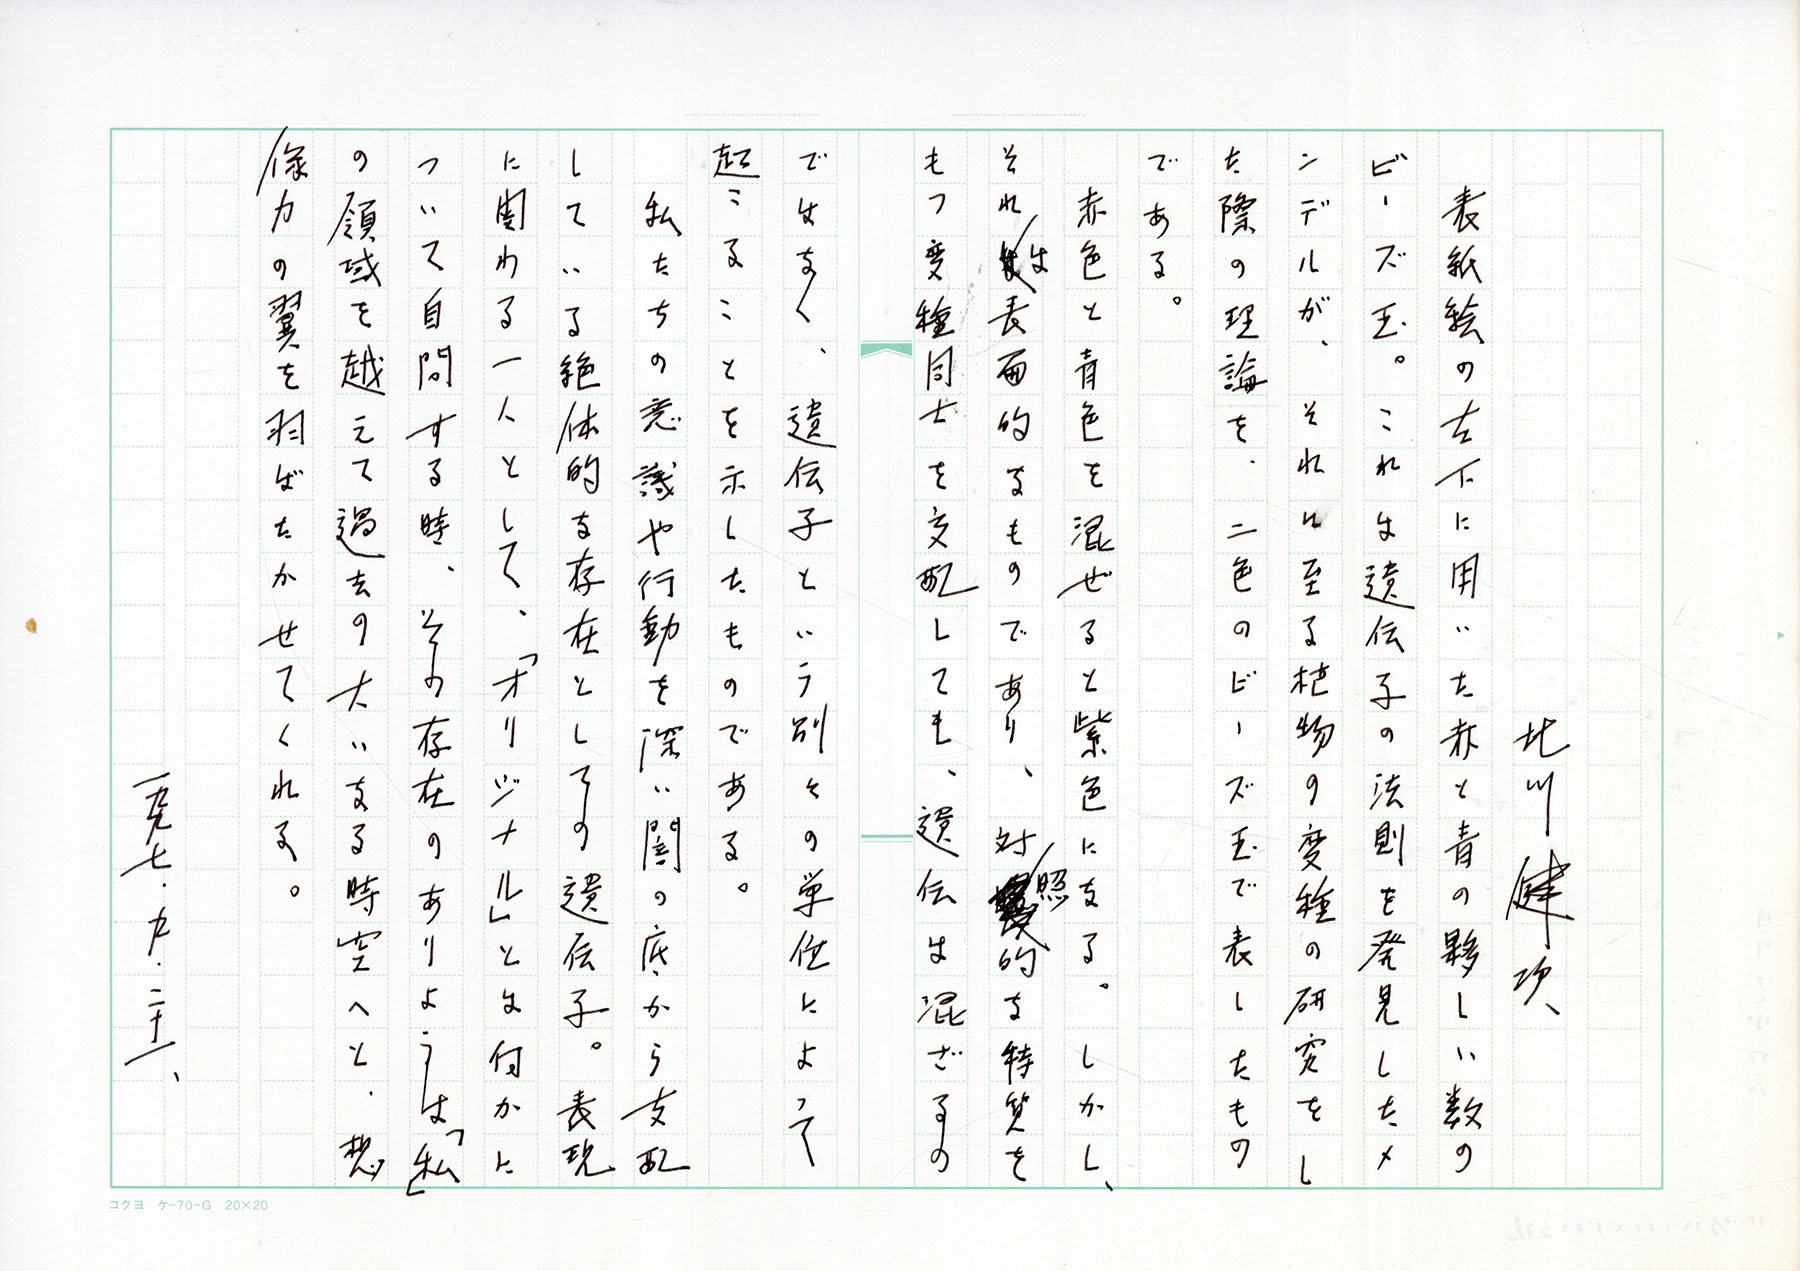 北川健次
表紙絵の左下に用いた赤と青の夥しい数の
ビーズ玉。これは遺伝子の法則を発見したメ
ンデルが、それに至る植物の変種の研究をし
た際の理論を、二色のビーズ玉で表したもの
である。
赤色と青色を混ぜると紫色になる。しかし、
それは表面的なものであり、対照的な特質を
もつ変種同士を交配しても、遺伝は混ざるの
ではなく、遺伝子という別々の単位によって
起こることを示したものである。
私たちの意識や行動を深い闇の底から支配
している絶体的な存在としての遺伝子。表現
に関わる一人として、「オリジナル」とは何かに
ついて自問する時、その存在のありようは「私」
の領域を越えて過去の大いなる時空へと、想
像力の翼を羽ばたかせてくれる。
一九九七.九.二十一、
コクヨ ケ-70-G 20×20